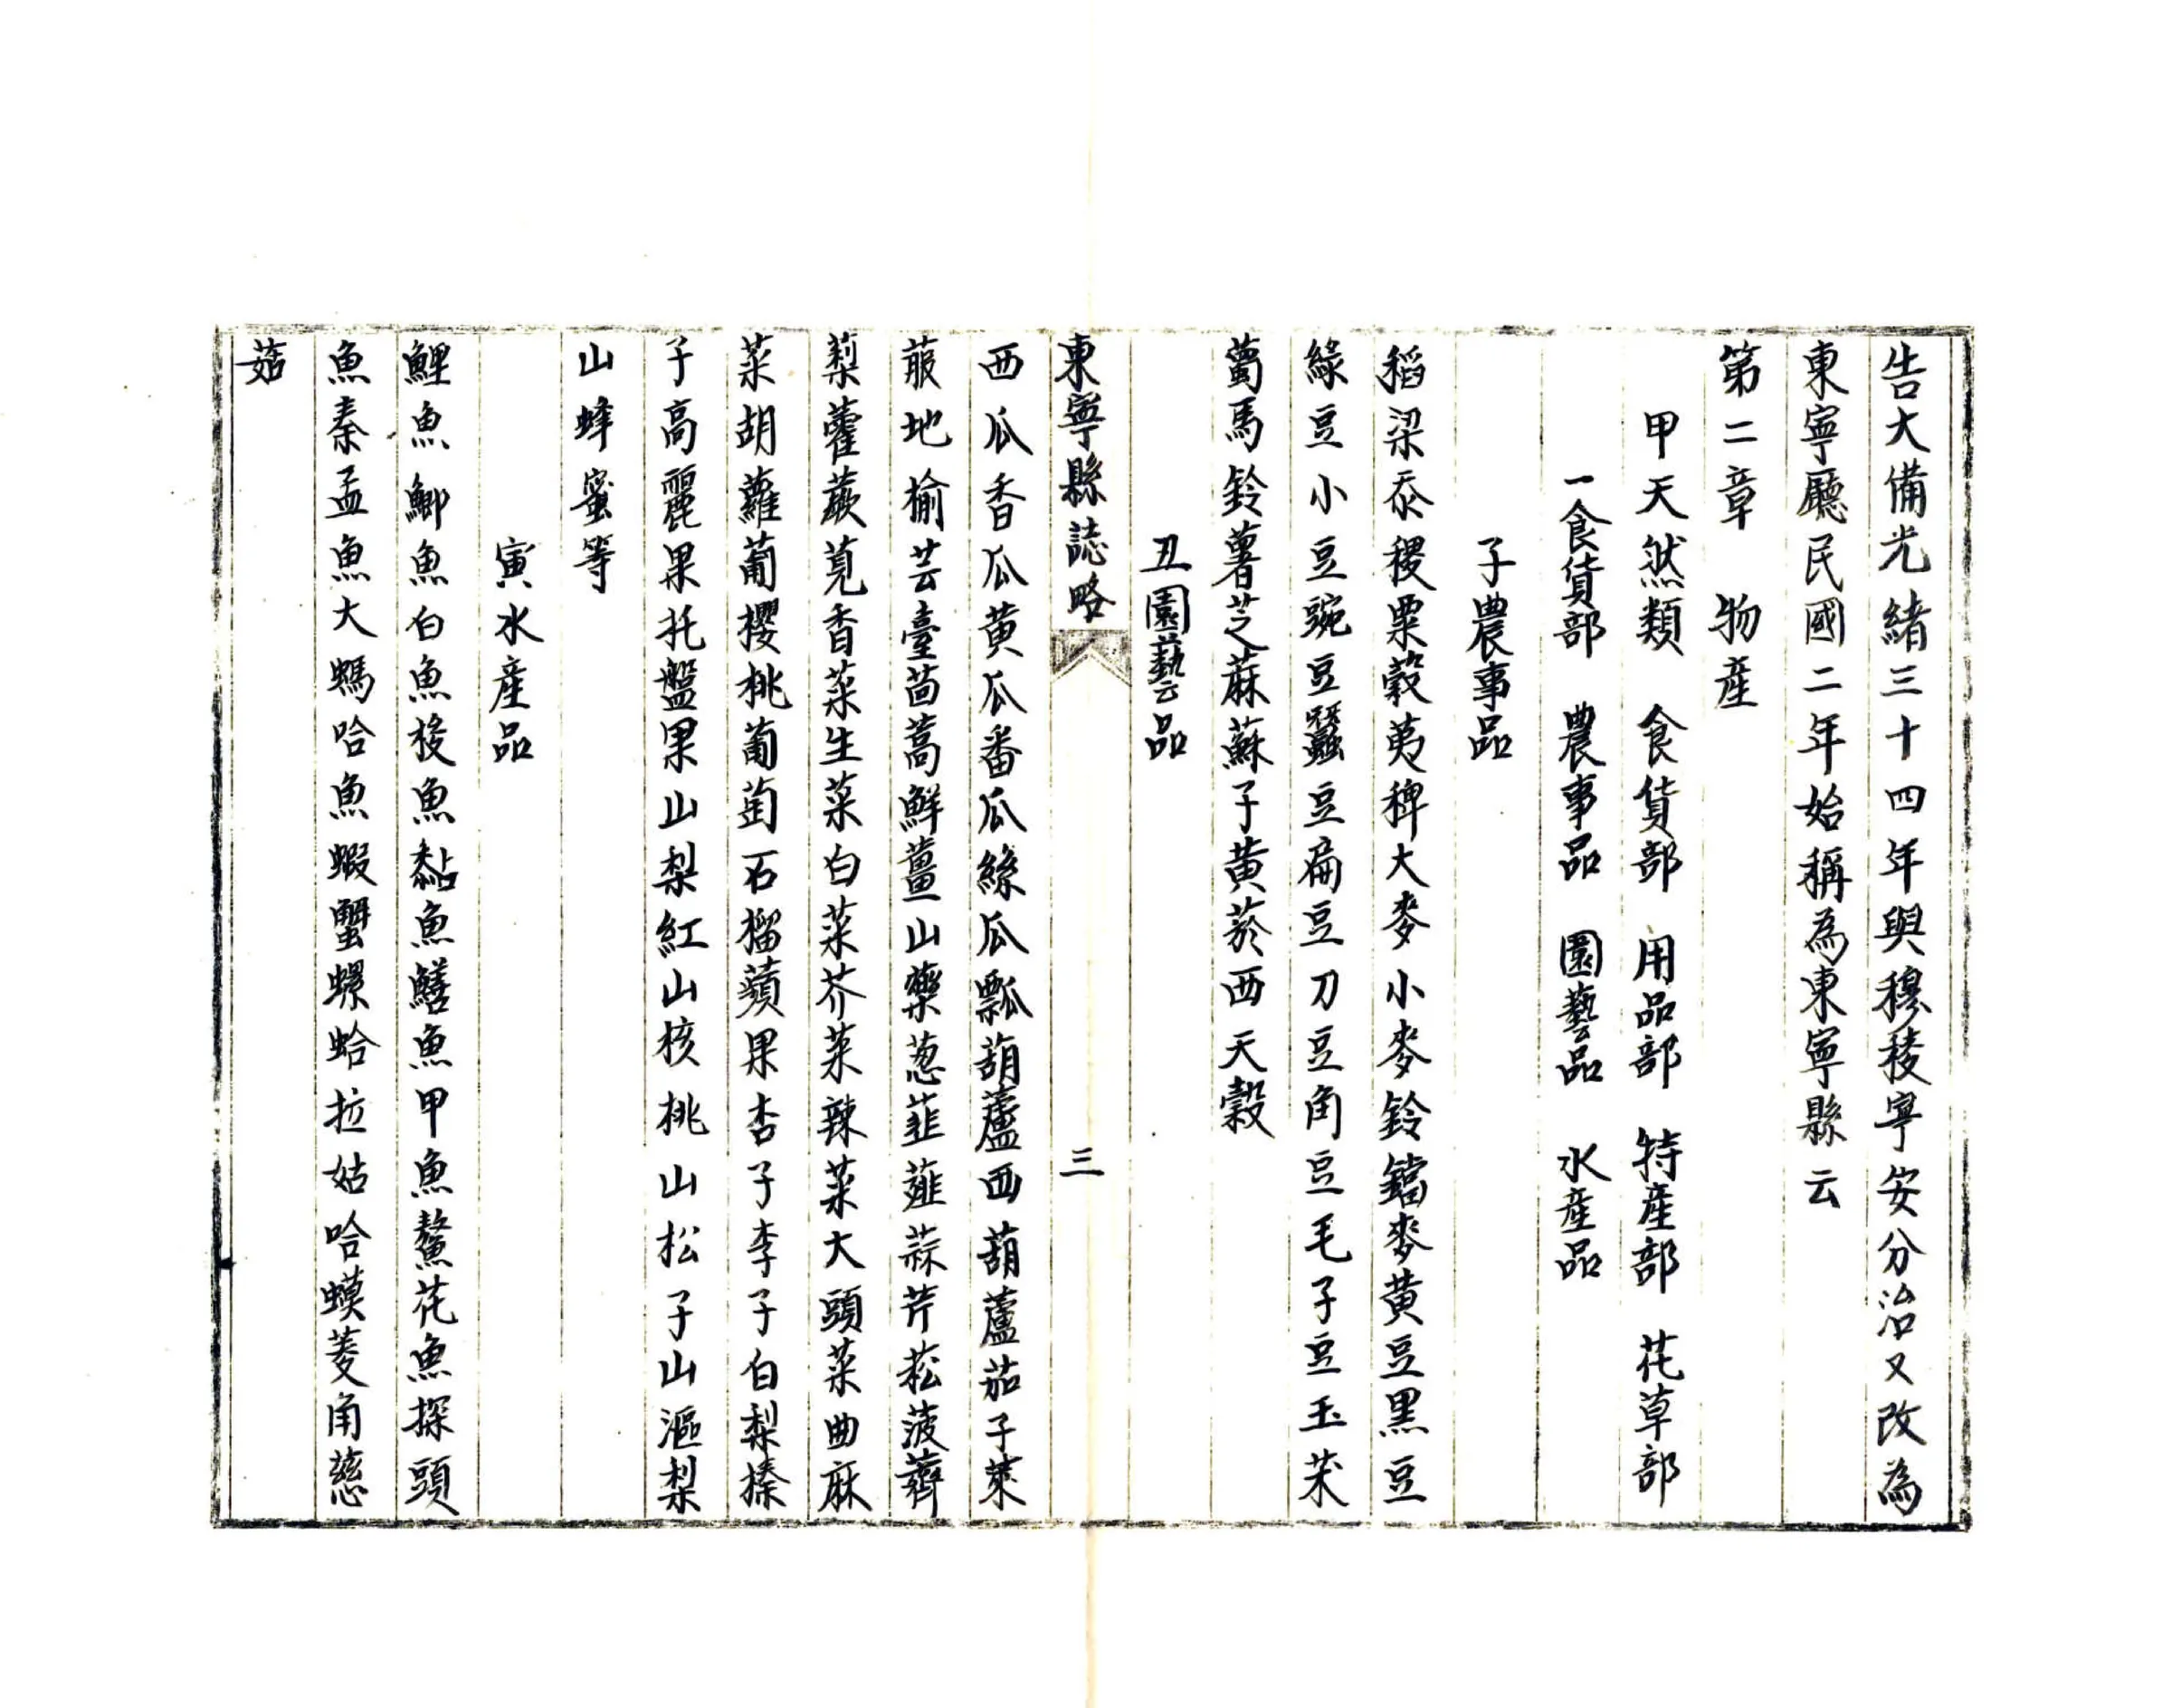 告大備光緒三十四年與穆稜寧安分治又改為
東寧廳民國二年始稱為東寧縣云
第二章　物產
甲天然類　食貨部　用品部　特產部　花草部
一食貨部　農事品　園藝品　水產品
子農事品
稻梁黍稷粟穀荑稗大麥小麥鈴鐺麥黃豆黑豆
綠豆小豆豌豆蠶豆扁豆刀豆角豆毛子豆玉米
蔔馬鈴薯芝蔴蘇子黃菸西天穀
丑園藝品
東寧縣誌略　三
西瓜香瓜黃瓜番瓜絲瓜瓢葫蘆西葫蘆茄子萊
菔地榆芸臺茴蒿鮮薑山藥葱韭薤蒜芹菘菠薺
莉藿蕨莧香菜生菜白菜芥菜辣菜大頭菜曲麻
菜胡蘿蔔櫻桃葡萄石榴蘋果杏子李子白梨榛
子高麗果托盤果山梨紅山核桃山松子山漚梨
山蜂蜜等
寅水產品
鯉魚鯽魚白魚梭魚黏魚鱔魚甲魚鰲花魚探頭
魚秦孟魚大螞哈魚蝦蟹螺蛤拉姑哈蟆菱角慈
菇